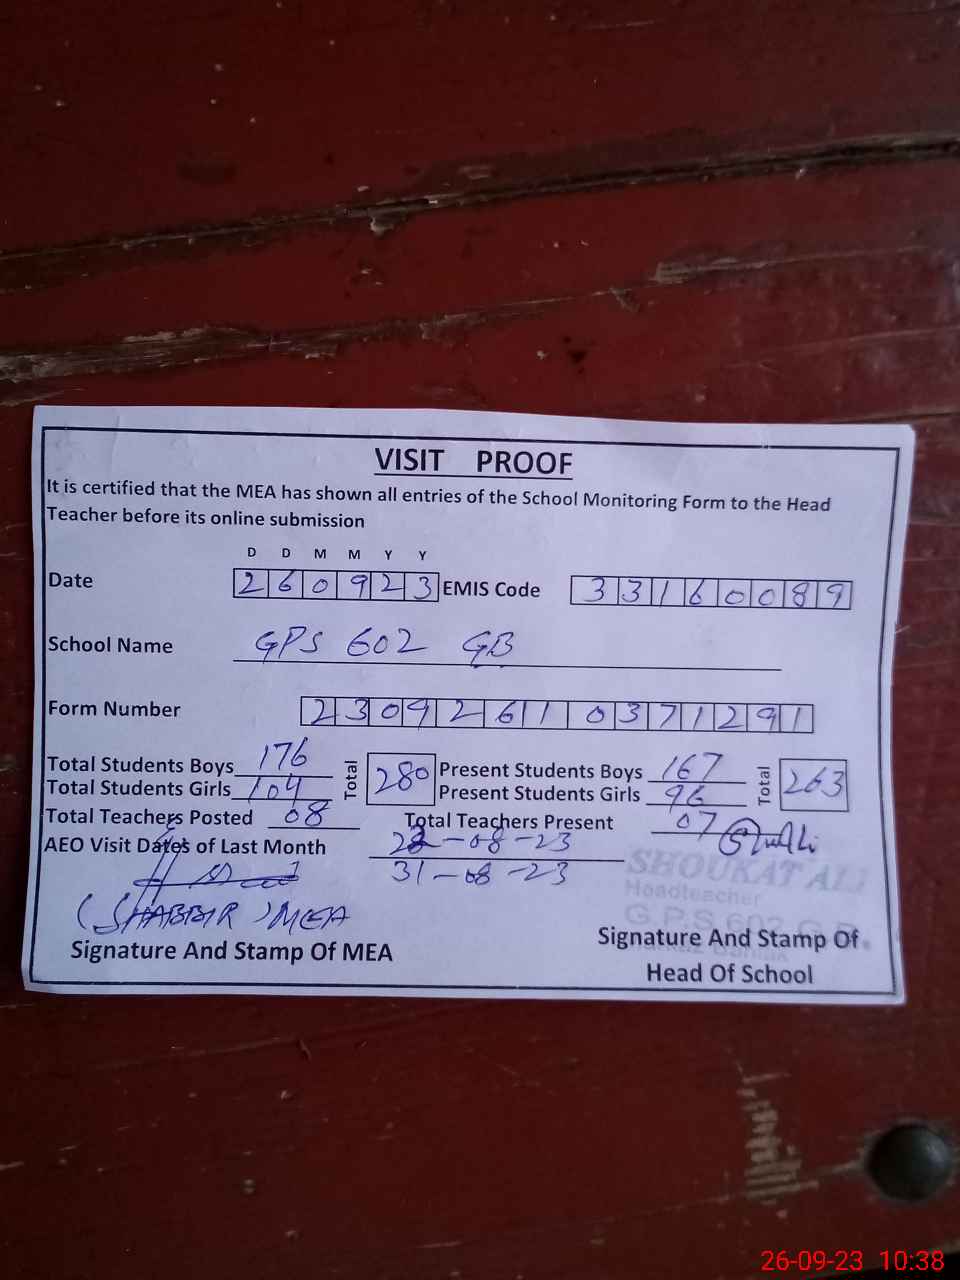 VISIT PROOF
It is certified that the MEA has shown all entries of the School Monitoring Form to the Head
Teacher before its online submission
D D M M Y Y
Date 260923 EMIS Code 33160089
School Name GPS 602 GB
Form Number 23092610371291
Total Students Boys 176 Total 280 Present Students Boys 167 Total 263
Total Students Girls 104 Present Students Girls 96
Total Teachers Posted 08 Total Teachers Present 07
AEO Visit Dates of Last Month -08-23
31-08-23
SHOUKAT ALI
Headteacher
G.P.S 602 G.B.
(SHABBIR) MEA
Signature And Stamp Of MEA
Signature And Stamp Of
Head Of School
26-09-23 10:38